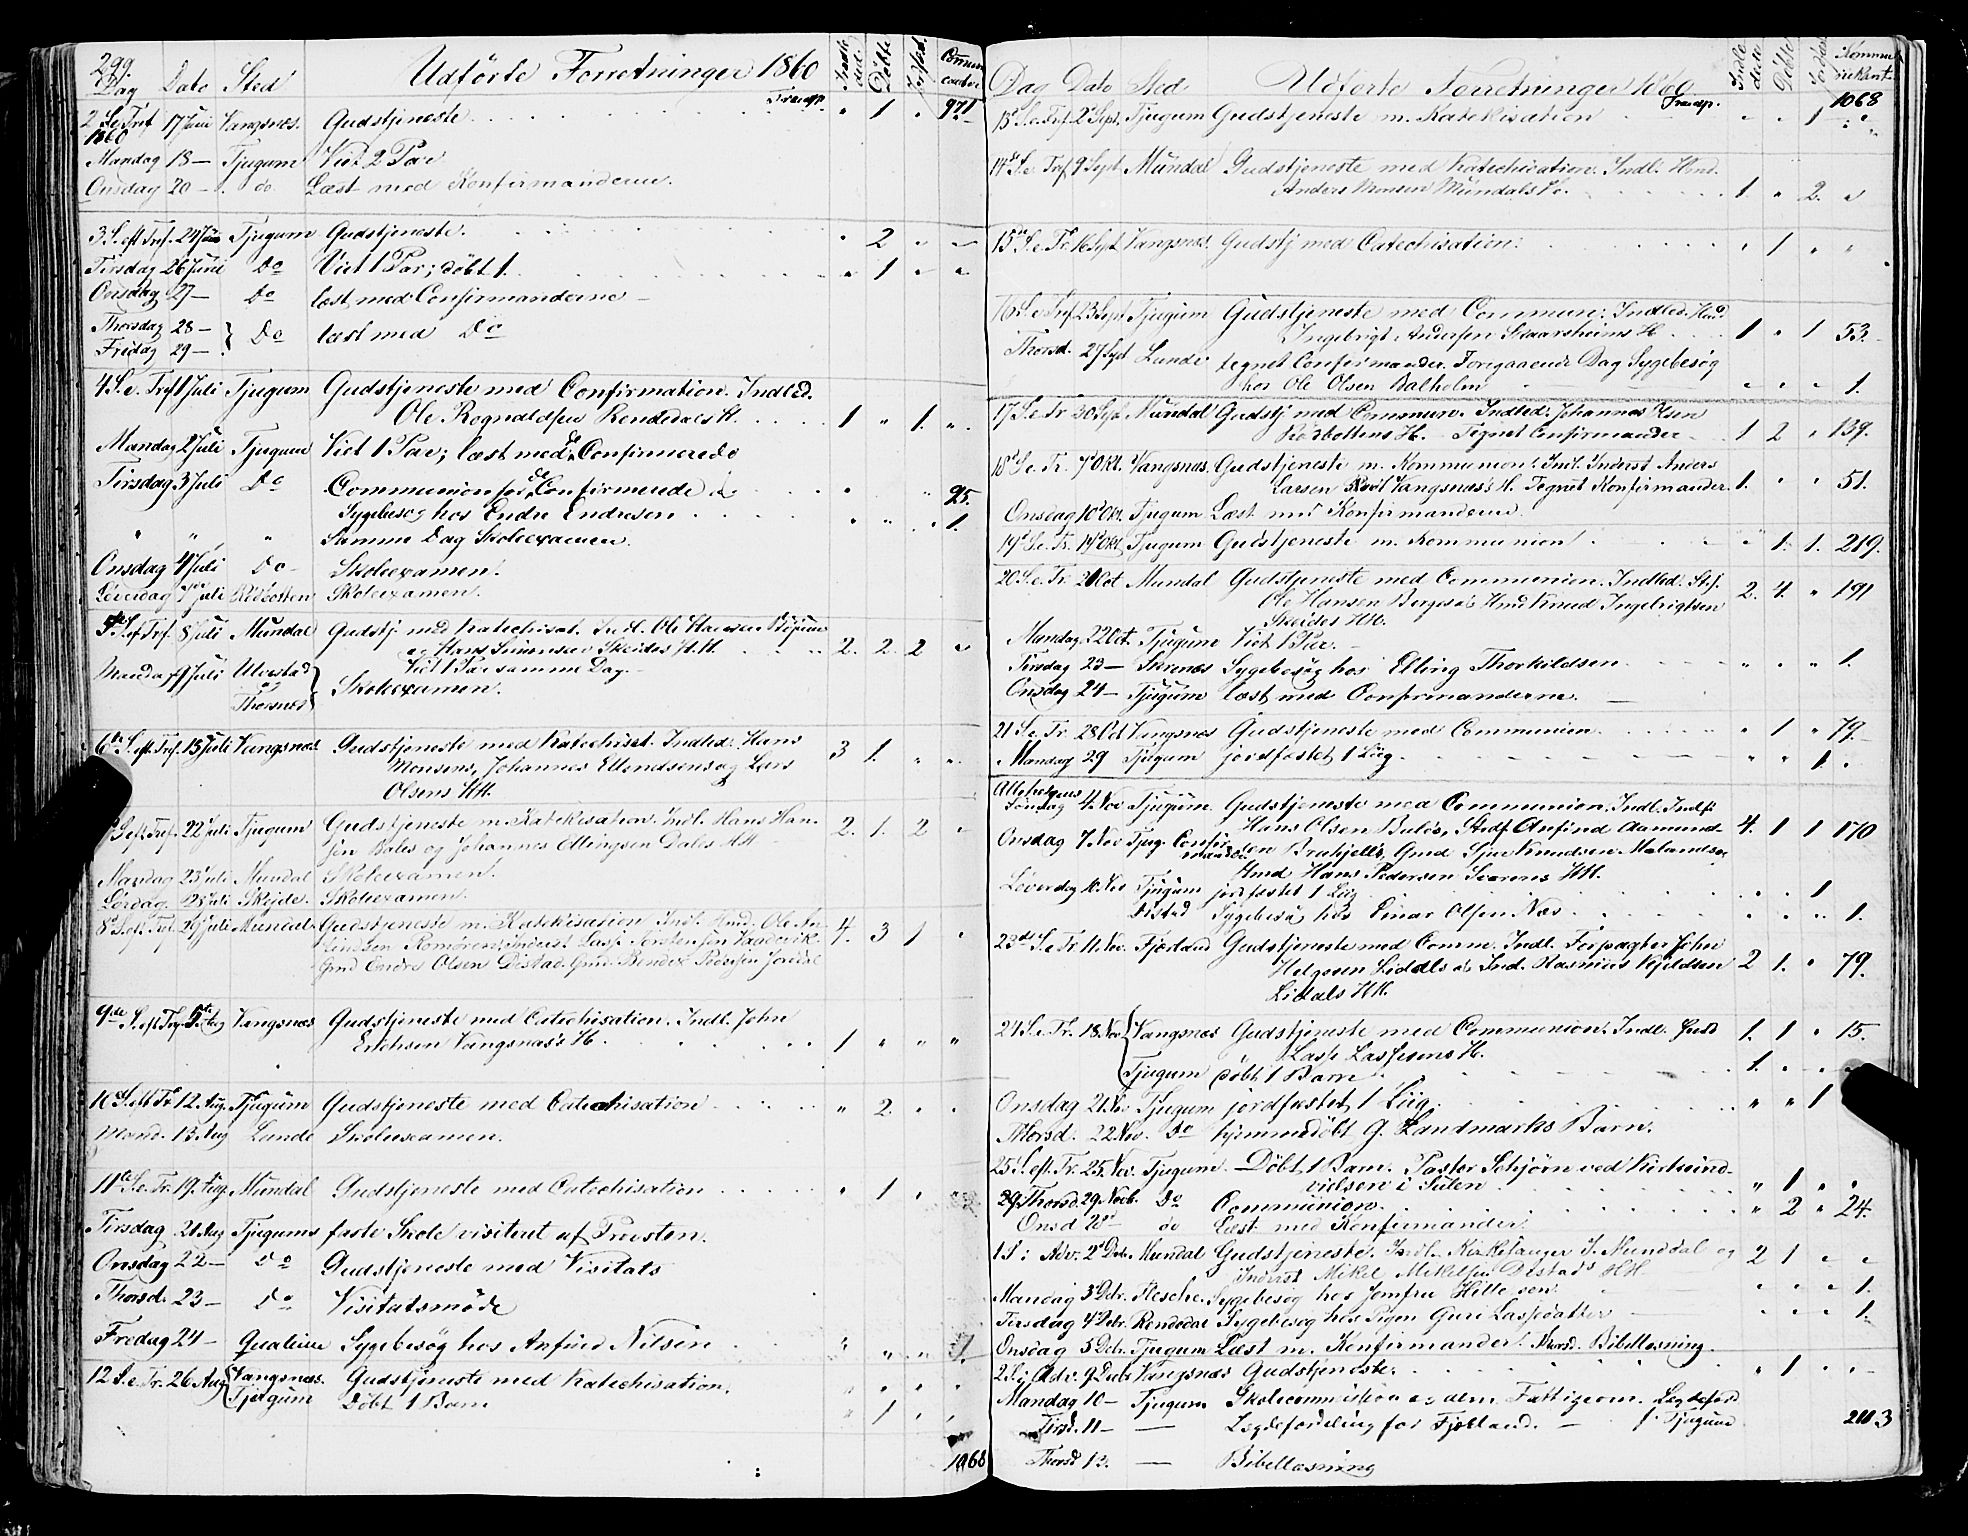 299
Dag Dato Sted Udførte Forretninger 1860 Døbte
Transp.
2 S.e. Tref 17 Juni Vangsnæs. Gudstjeneste " 1 " 971
1860
Mandag 18 — Tjugum Viet 2 Par
Onsdag 20 — do. Læst med Konfirmanderne.
3 S. eft Tref. 24 Juni Tjugum Gudstjeneste. " 2 " "
Tirsdag 26 Juni Do Viet 1 Par; døbt 1. " 1 " "
Onsdag 27 — Do læst med Confirmanderne —
Thorsdag 28 —
Fredag 29 — } Do læst med Do
4 S. e. Tref 1 Juli Tjugum Gudstjeneste med Confirmation. Indled.
Ole Rognaldsen Rendedals H. 1 " 1. "
Mandag 2 Juli Tjugum Viet 1 Par; læst med de Confirmerede
Tirsdag 3 Juli Do Communion for de Confirmerede " " 95.
Sygebesøg hos Endre Endresen " " " 1.
" " " Samme Dag Skoleexamen.
Onsdag 4 Juli Do — Skoleexamen.
Løverdag 7 Juli Rødbotten Skoleexamen.
5te S. ef Tref. 8 Juli Mundal Gudstj. med Katechisat. Indl. Ole Hansen Bøjum
og Hans Simonsen Skeides HH. 2. 2. 2 "
Viet 1 Par samme Dag.
Mandag 9 Juli Ulvestad og Thorsnes } Skoleexamen.
6te S. eft. Tref. 15 Juli Vangsnæs Gudstjeneste med Katechisat. Indled. Hans 3 1. " "
Monsens, Johannes Ellendsens og Lars
Olsens HH.
S. eft. Tref. 22 Juli Tjugum Gudstjeneste m. Katekisation. Indl. Hans Han- 2. 1. 2 "
sen Bales og Johannes Ellingsen Dales HH —
Mandag 23 Juli Mundal Skoleexamen.
Lørdag 28 Juli Skejde. Skoleexamen.
8de S. eft. Tref. 29 Juli Mundal Gudstjeneste m. Katekisation Indl. Hmd. Ole 4. 3 1 "
Romøren, Inderst Lasse Torstensen
Gmd Endre Olsen Distad. Gmd. Bendix Jordal
9de S. eft Tref 5te Aug Vangsnæs Gudstjeneste med Catechisation. Indl. John
Erichsen Vangsnæs's H. 1 " " "
10de S. eft Tr 12. Aug. Tjugum Gudstjeneste med Catechisation " 2. " "
Mand. 13 Aug Lunde Skoleexamen.
11te S. e. Tr. 19. Aug. Mundal Gudstjeneste med Catechisation " 1 " "
Tirsdag 21 Aug Tjugums faste Skole visiteret af Provsten.
Onsdag 22 — Do Gudstjeneste med Visitats
Thorsd. 23 — Do Visitatsmøde
Fredag 24 — Sygebesøg hos Anfind Nilsen " " " 1.
12 S. e. Tr. 26 Aug { Vangsnæs. Gudstjeneste med Katechisation. " " " "
Tjugum Døbt 1 Barn " 1 " "
1068
Dag Dato Sted Udførte Forretninger 1860. Døbte
Transp. 1068
13 S. e. Tref. 2 Sept. Tjugum Gudstjeneste m. Katekisation " " 1 "
14de S. e. Tref 9 Sept Mundal Gudstjeneste med Katechisation. Indl. Hmd.
Anders Monsen Mundals H. 1 " 2. "
15de S. e. Tr 16 Sept Vangsnæs. Gudstj med Catechisation. " 1 " "
16 S. e. Tref 23 Sept Tjugum Gudstjeneste med Commun: Indled. Hmd.
Ingebrigt Andersen Skaarsheims H. 1 " 1 53.
Thorsd. 27 Sept Lunde tegnet Confirmander. Foregaaende Dag Sygebesøg
hos Ole Olsen Balholm " " " 1.
17 S. e. Tr 30 Sept. Mundal Gudstj med Commun. Indled: Johannes Olsen
Rødbottens H. — Tegnet Confirmander — 1 2 " 139.
18de S. e. Tr. 7de Okt. Vangsnæs. Gudstjeneste m. Kommunion. Indl. Inderst Anders
Larsen Vangsnæs's H. Tegnet Konfirmander 1. " " 51.
Onsdag 10de Okt. Tjugum Læst med Konfirmanderne.
19de S. e. Tr. 14de Okt. Tjugum Gudstjeneste m. Kommunion " 1. 1. 219.
20 S. e. Tr. 21 Oct Mundal Gudstjeneste med Communion. Indled. 2. 4. " 191
Ole Hansen Berges & Hmd Knud Ingebrigtsen
Skeides HH.
Mandag 22 Oct. Tjugum Viet 1 Par. —
Tirsdag 23 — Sygebesøg hos Elling Thorkildsen " " " 1.
Onsdag 24 — Tjugum læst med Confirmanderne. —
21 S. e. Tr. 28 Oct Vangsnæs Gudstjeneste med Communion " 1 " 79.
Mandag 29 Tjugum jordfæstet 1 Liig " " 1. "
Allehelgens
Søndag 4. Nov Tjugum Gudstjeneste med Communion. Indl.
Hans Olsen Anfind Aamund- 4. 1 1 170
Onsdag 7 Nov Tjug. Confir-
mander sen Knudsen Melands &
Hmd Hans Pedersen HH.
Løverdag 10 Nov Tjugum jordfæstet 1 Liig " " 1
Distad Sygebesøg hos Einar Olsen Næs. " " " 1.
23de S. e. Tr 11. Nov. Fjærland Gudstjeneste med Comm. Indl. Forpagter John
Helgesen Liddls & Ind. Rasmus Kjeldsen 2 1. " 79.
Lidals HH.
24 S. e. Tr. 18 Nov { Vangsnæs Gudstjeneste med Communion. Indl. Gmd 1. 1 " 15.
Lasse Lassesens H.
Tjugum døbt 1 Barn 1. " "
Onsdag 21 Nov Tjugum jordfæstet 1 Liig. " " 1
Thorsd. 22 Nov. Do hjemmedøbt G. Landmarks Barn.
25 S. eft. Tr. 25. Nov. Tjugum. — Døbt 1 Barn. Pastor Schjørn ved Kirkeind-
vielsen i Sulen " 1 " "
29. Thorsd. 29 Novb. Do Communion. " 2 " 24.
Onsd 28de do Læst med Konfirmander.
1 S. i Adv. 2de Debr. Mundal Gudstjeneste. Indl. Kirkesanger J. Munddal og 2 1 " "
Inderst Mikel Mikelsen Distads HH.
Mandag 3de Debr. Flesche Sygebesøg hos Jomfru " " " 1.
Tirsdag 4de Debr. Rendedal Sygebesøg hos Pigen Guri Lassedatter — " " " 1.
Onsdag 5 Debr. Tjugum Læst m. Konfirmander. Thorsd. Bibellæsning.
2 S. i Adv. 9 Debr Vangsnæs Gudstjeneste. " 1 " "
Mandag 10 — Tjugum Skolecommission og dern. Fattigcom. Lægdeford
Tirsd. 11 — — Lægdefordeling for Fjærland. — f. Tjugum 2113
Thorsd 13. — Bibellæsning